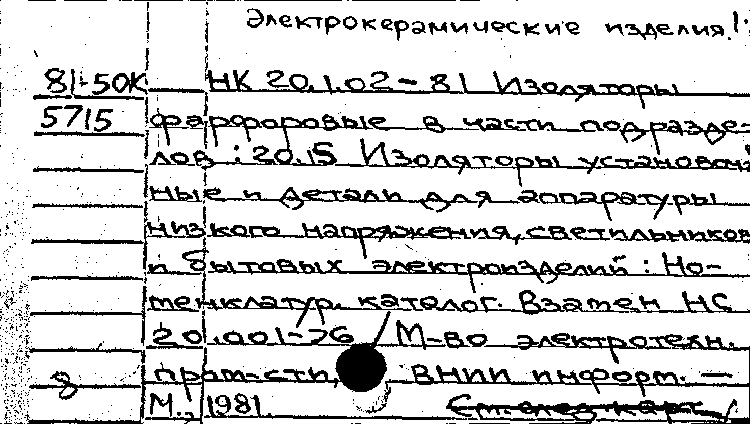 Электрокерамические изделия.
81-50К НК 20.1.02-81 Изоляторы
5715 фарфоровые в части подразде-
лов: 20.15 Изоляторы установоч-
ные и детали для аппаратуры
низкого напряжения, светильников
и бытовых электроизделий: Но-
менклатур. каталог. Взамен НС
20.001-76 / М-во электротехн.
8 пром-сти, ВНИИ информ. —
М., 1981. См. след. карт.